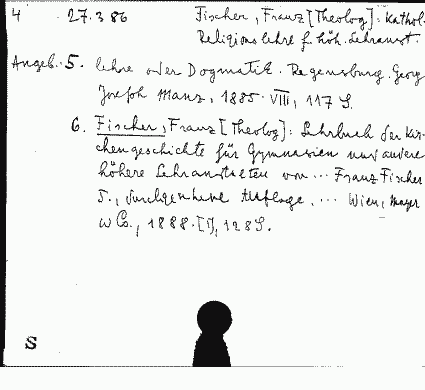 4 27.3 86 Fischer, Franz [Theolog]: Kathol.
Religionslehre f. höh. Lehranst.
Angeb. 5. lehre oder Dogmatik. Regensburg. Georg
Joseph Manz, 1885. VIII, 117 S.
6. Fischer, Franz [Theolog]: Lehrbuch der Kir-
chengeschichte für Gymnasien und andere
höhere Lehranstalten von ... Franz Fischer
5., durchgesehene Auflage. ... Wien, Mayer
u Co., 1888. [I], 128 S.
S